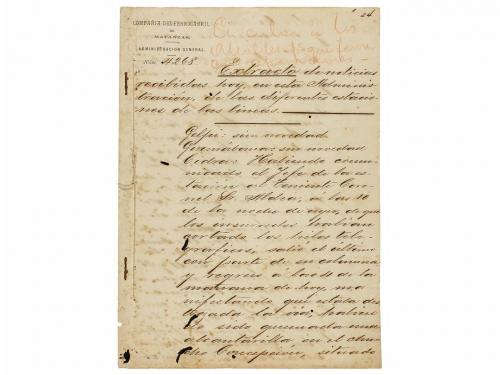 24
COMPAÑIA DEL FERROCARRIL
DE
MATANZAS.
ADMINISTRACION GENERAL.
Núm. 4268
Circular á los
Extracto de noticias
recibidas hoy, en esta Adminis-
tración, de las diferentes estacio-
nes de las lineas.
Guelfi: sin novedad
Guanábana: sin novedad
Cidra: Habiendo comuni-
cado el Jefe de la es-
tación al Teniente Coro-
nel Sr. Aldea, á las 10
de la noche de ayer, de que
los insurrectos habian
cortado los hilos tele-
gráficos, salió el último
con parte de su columna
y regresó á las 4 de la
mañana de hoy, ma-
nifestando que estaba des-
pejada la via, habien-
do sido quemada una
alcantarilla en el chu-
cho Concepción, situado